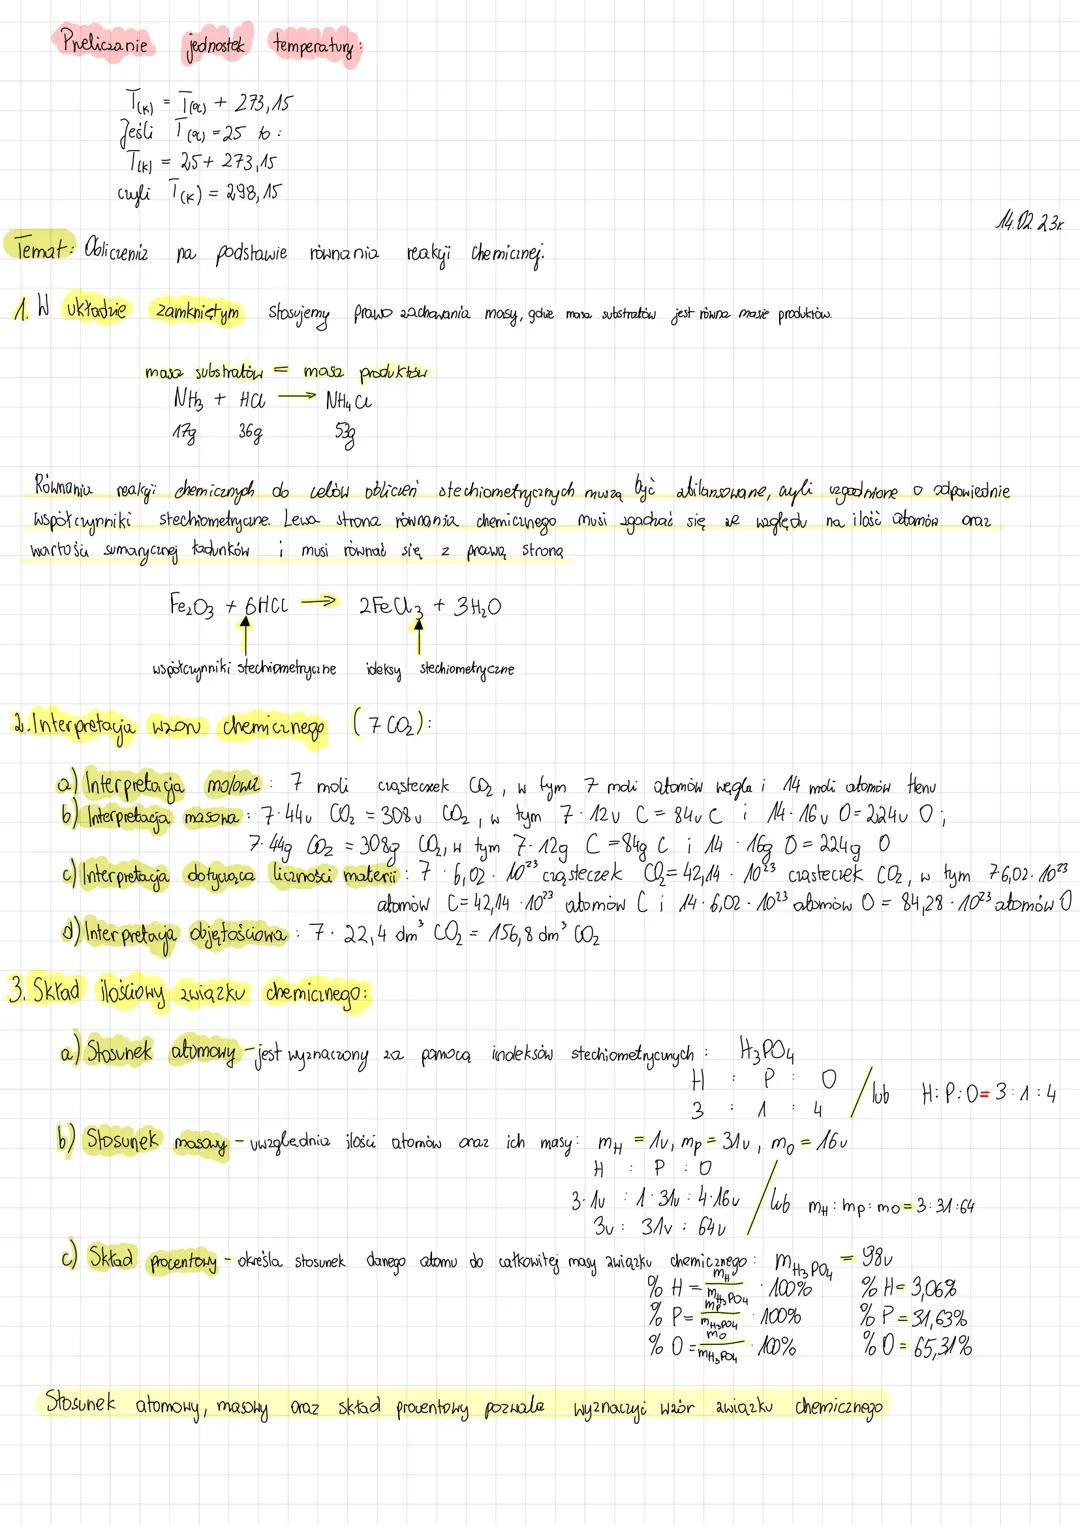 Przeliczanie jednostek temperatury:
T(K) = T(°C) + 273,15
Jeśli T(°C) = 25 to:
T(K) = 25 + 273,15
czyli T(K) = 298,15
14.02.23r.
Temat: Obliczenia na podstawie równania reakcji chemicznej.
1. W układzie zamkniętym stosujemy prawo zachowania masy, gdzie masa substratów jest równa masie produktów.
masa substratów = masa produktów
NH₃ + HCl → NH₄Cl
17g 36g 53g
Równania reakcji chemicznych do celów obliczeń stechiometrycznych muszą być zbilansowane, czyli uzgodnione o odpowiednie
współczynniki stechiometryczne. Lewa strona równania chemicznego musi zgadzać się ze względu na ilość atomów oraz
wartości sumarycznej ładunków i musi równać się z prawą stroną
Fe₂O₃ + 6HCl → 2FeCl₃ + 3H₂O
współczynniki stechiometryczne ideksy stechiometryczne
2. Interpretacja wzoru chemicznego (7CO₂):
a) Interpretacja molowa: 7 moli cząsteczek CO₂, w tym 7 moli atomów węgla i 14 moli atomów tlenu
b) Interpretacja masowa: 7·44u CO₂ = 308u CO₂, w tym 7·12u C = 84u C i 14·16u O = 224u O;
7·44g CO₂ = 308g CO₂, w tym 7·12g C = 84g C i 14·16g O = 224g O
c) Interpretacja dotycząca liczności materii: 7·6,02·10²³ cząsteczek CO₂ = 42,14·10²³ cząsteczek CO₂, w tym 7·6,02·10²³
atomów C = 42,14·10²³ atomów C i 14·6,02·10²³ atomów O = 84,28·10²³ atomów O
d) Interpretacja objętościowa: 7·22,4 dm³ CO₂ = 156,8 dm³ CO₂
3. Skład ilościowy związku chemicznego:
a) Stosunek atomowy - jest wyznaczony za pomocą indeksów stechiometrycznych: H₃PO₄
H : P : O
3 : 1 : 4 / lub H:P:O = 3:1:4
b) Stosunek masowy - uwzględnia ilości atomów oraz ich masy: mH = 1u, mP = 31u, mO = 16u
H : P : O
3·1u : 1·31u : 4·16u / lub mH : mP : mO = 3:31:64
3u : 31u : 64u
c) Skład procentowy - określa stosunek danego atomu do całkowitej masy związku chemicznego: mH₃PO₄ = 98u
% H = mH/mH₃PO₄ · 100% % H = 3,06%
% P = mP/mH₃PO₄ · 100% % P = 31,63%
% O = mO/mH₃PO₄ · 100% % O = 65,31%
Stosunek atomowy, masowy oraz skład procentowy pozwala wyznaczyć wzór związku chemicznego